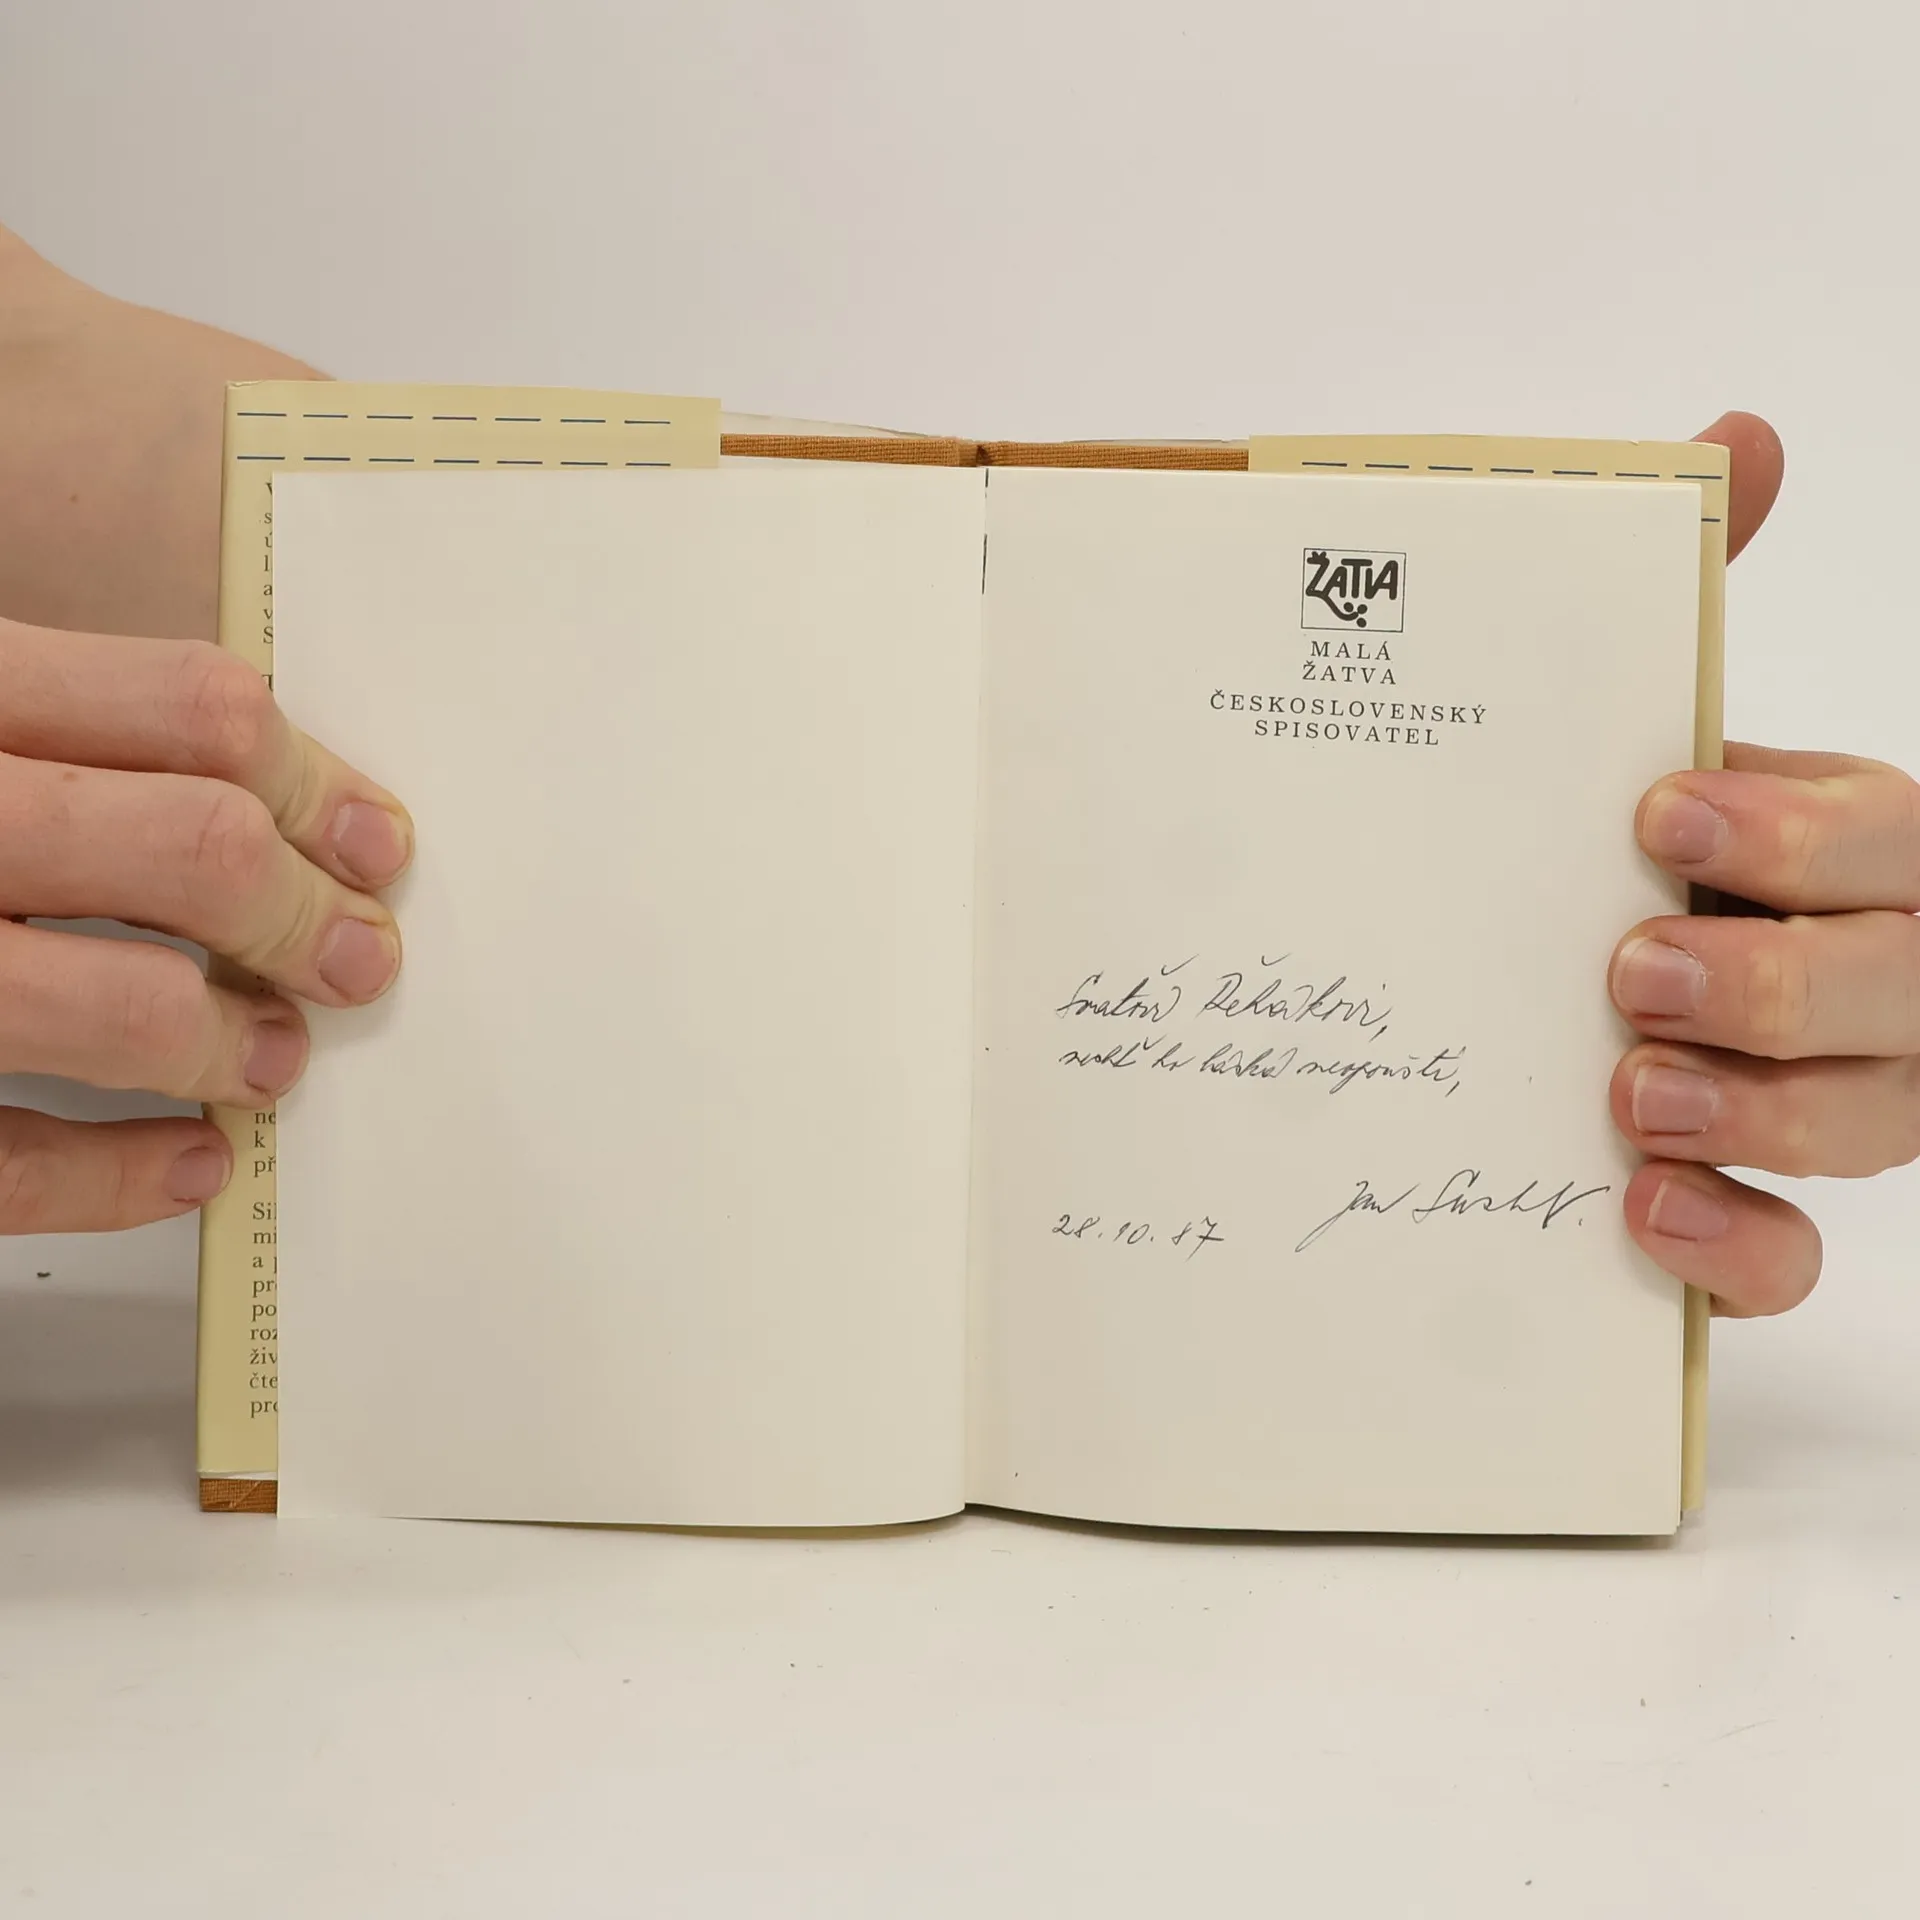 V
s
ú
l
a
v
S
T
ne
k
př
Sil
mi
a p
pr
po
roz
živ
čte
pro
ŽATVA
MALÁ
ŽATVA
ČESKOSLOVENSKÝ
SPISOVATEL
Řehákovi,
nechť ho láska neopouští,
Jan
28.10.87